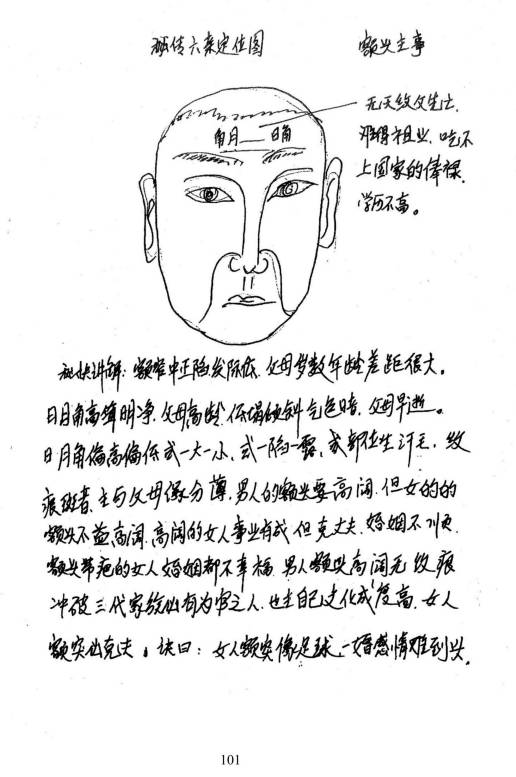 秘传六亲定位图
额头主事
无天纹父先亡.
难得祖业.吃不
上国家的俸禄.
学历不高。
月 日角
秘诀讲解:额窄中正陷发际低.父母岁数年龄差距很大。
日月角高耸明净.父母高龄.低塌倾斜气色暗.父母早逝。
日月角偏高偏低或一大一小.或一陷一露.或部位生汗毛.纹
痕斑者.主与父母缘分薄.男人的额头要高阔.但女的的
额头不益高阔.高阔的女人事业有成但克丈夫.婚姻不顺.
额头带疤的女人婚姻都不幸福.男人额头高阔无纹痕
冲破三代家族必有为官之人.也主自己文化成度高.女人
额突必克夫。诀曰:女人额突像足球.一婚感情难到头.
101